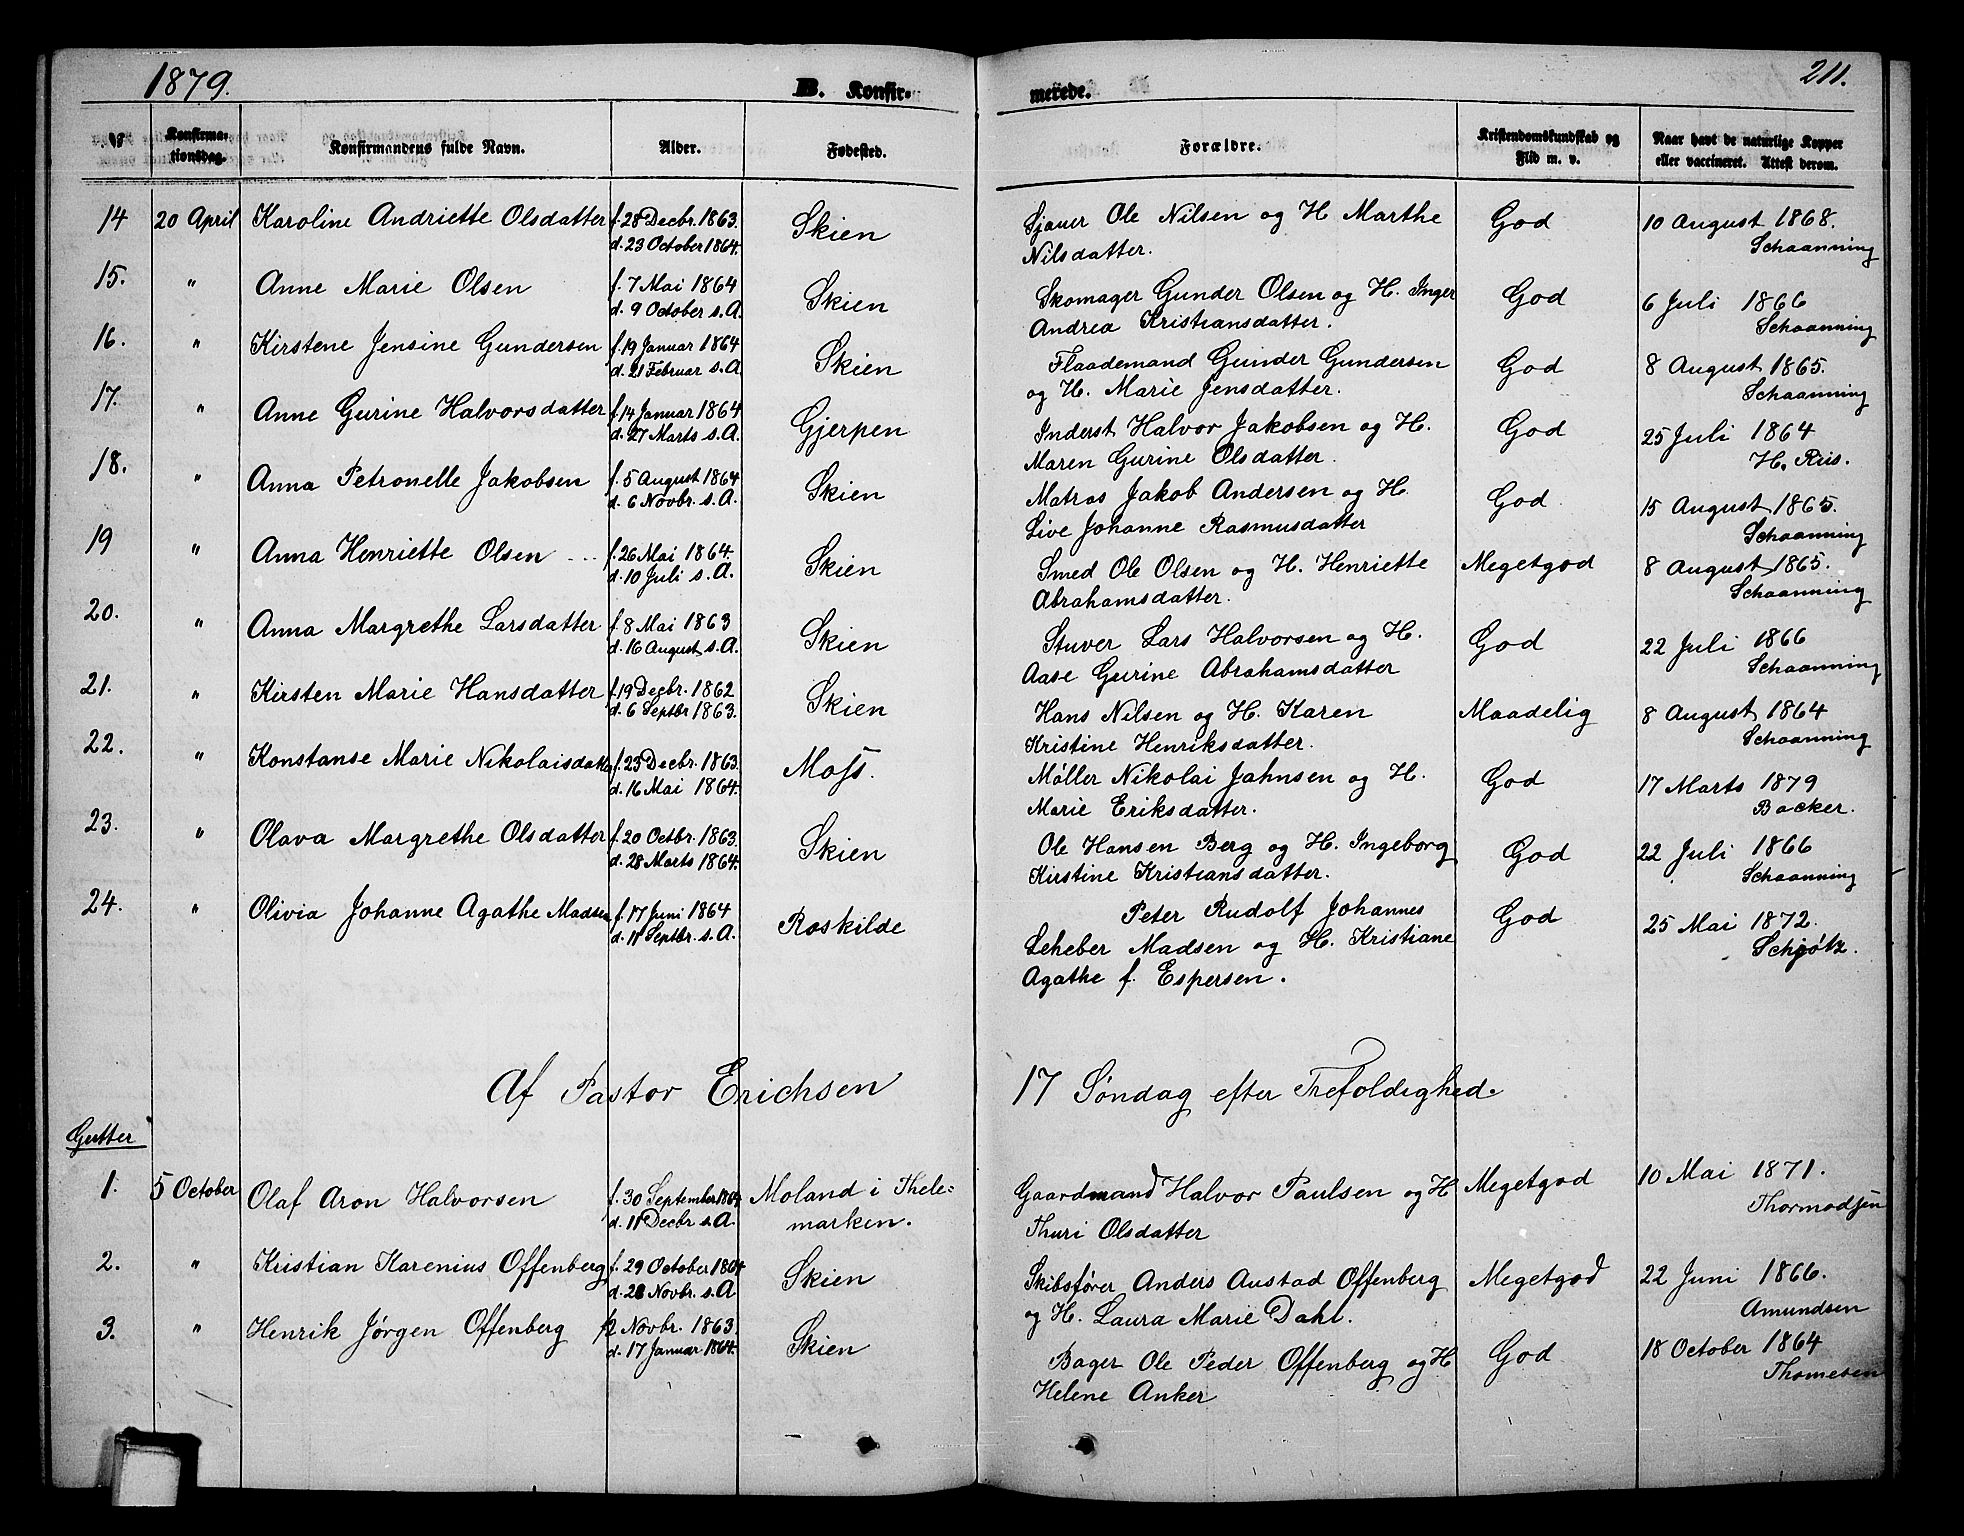 1879.
B. Konfir-
merede.
211.
№ Konfirma-tionsdag. Konfirmandens fulde Navn. Alder. Fødested. Forældre. Kristendomskundskab og Flid m. v. Naar havt de naturlige Kopper eller vaccineret. Attest derom.
14 20 April Karoline Andriette Olsdatter f. 28 Decbr. 1863. Skien Sjauer Ole Nilsen og H Marthe God 10 August 1868.
d. 23 October 1864. Nilsdatter. Schaanning
15. " Anne Marie Olsen f. 7 Mai 1864 Skien Skomager Gunder Olsen og H. Inger God 6 Juli 1866
d. 9 October s. A. Andrea Kristiansdatter. Schaanning
16. " Kirstene Jensine Gundersen f. 19 Januar 1864 Skien Flaademand Gunder Gundersen God 8 August 1865.
d. 21 Februar s. A og H. Marie Jensdatter. Schaanning
17. " Anne Gurine Halvorsdatter f. 14 Januar 1864 Gjerpen Inderst Halvor Jakobsen og H. God 25 Juli 1864
d. 27 Marts s. A. Maren Gurine Olsdatter. H. Kris.
18. " Anna Petronelle Jakobsen f. 5 August 1864 Skien Matros Jakob Andersen og H God. 15 August 1865.
d. 6 Novbr. s. A. Live Johanne Rasmusdatter Schaanning
19 " Anna Henriette Olsen f. 26 Mai 1864. Skien Smed Ole Olsen og H. Henriette Megetgod 8 August 1865.
d. 10 Juli s. A. Abrahamsdatter. Schaanning
20. " Anna Margrethe Larsdatter f. 8 Mai 1863 Skien Stuver Lars Halvorsen og H. God 22 Juli 1866
d. 16 August s. A. Aase Gurine Abrahamsdatter Schaanning
21. " Kirsten Marie Hansdatter f. 19 Decbr. 1862 Skien Hans Nilsen og H. Karen Maadelig 8 August 1864
d. 6 Septbr 1863. Kristine Henriksdatter. Schaanning
22. " Konstanse Marie Nikolaisdatter f. 25 Decbr. 1863. Moss. Møller Nikolai Jahnsen og H. God 17 Marts 1879
d. 16 Mai 1864. Marie Eriksdatter. Backer.
23. " Olava Margrethe Olsdatter f. 20 Octbr. 1863. Skien Ole Hansen Berg og H. Ingeborg God 22 Juli 1866
d. 28 Marts 1864. Kirstine Kristiansdatter. Schaanning
24. " Olivia Johanne Agathe Madsen f. 17 Juni 1864 Roskilde Peter Rudolf Johannes God 25 Mai 1872.
d. 11 Septbr. s. A. Leheber Madsen og H. Kristiane Schjøtz.
Agathe f. Espersen.
Af Pastor Erichsen 17 Søndag efter Trefoldighed.
Gutter
1. 5 October Olaf Aron Halvorsen f. 30 September 1864 Moland i Thele= Gaardmand Halvor Paulsen og H Megetgod 10 Mai 1871.
d. 11 Decbr s. A. marken. Thuri Olsdatter Thormodsen
2. " Kristian Karenius Offenberg f. 29 October 1864 Skien Skibsfører Anders Austad Offenberg Megetgod 22 Juni 1866.
d. 28 Novbr. s. A og H. Laura Marie Dahl. Amundsen
3. " Henrik Jørgen Offenberg f. 2 Novbr. 1863. Skien Bager Ole Peder Offenberg og H God 18 October 1864
d. 17 Januar 1864. Helene Anker Thomesen